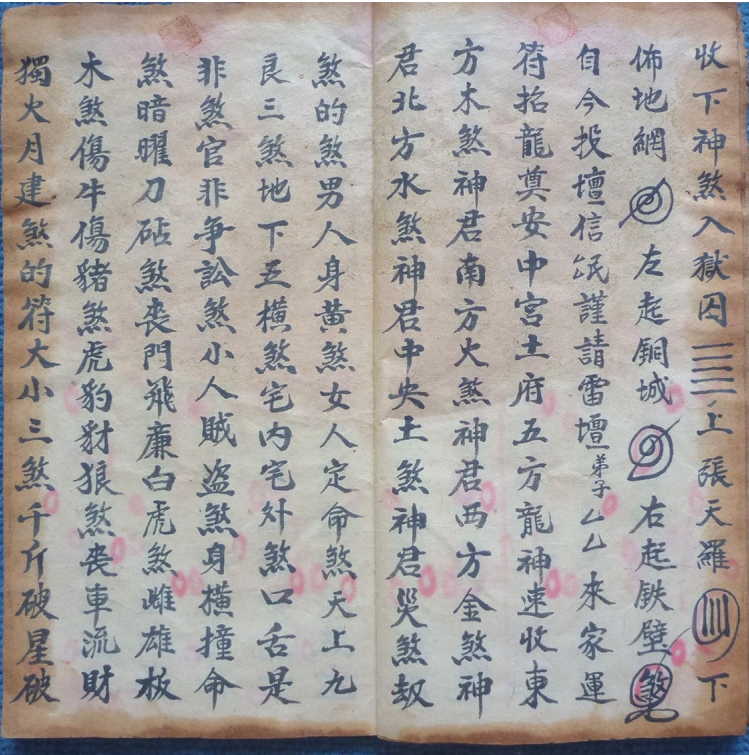 收下神煞入獄囚三三上張天羅下
佈地網左起銅城右起鉄壁煞
自今投壇信民謹請雷壇弟子厶厶來家運
符招龍奠安中宮土府五方龍神速收東
方木煞神君南方火煞神君西方金煞神
君北方水煞神君中央土煞神君災煞刼
煞的煞男人身黄煞女人定命煞天上九
良三煞地下橫煞宅内宅外煞口舌是
非煞官非争訟煞小人賊盗煞身橫撞命
煞暗曜刀砧煞丧門飛廉白虎煞雌雄板
木煞傷牛傷豬煞虎豹豺狼煞丧車流財
獨火月建煞的符大小三煞千斤破星破